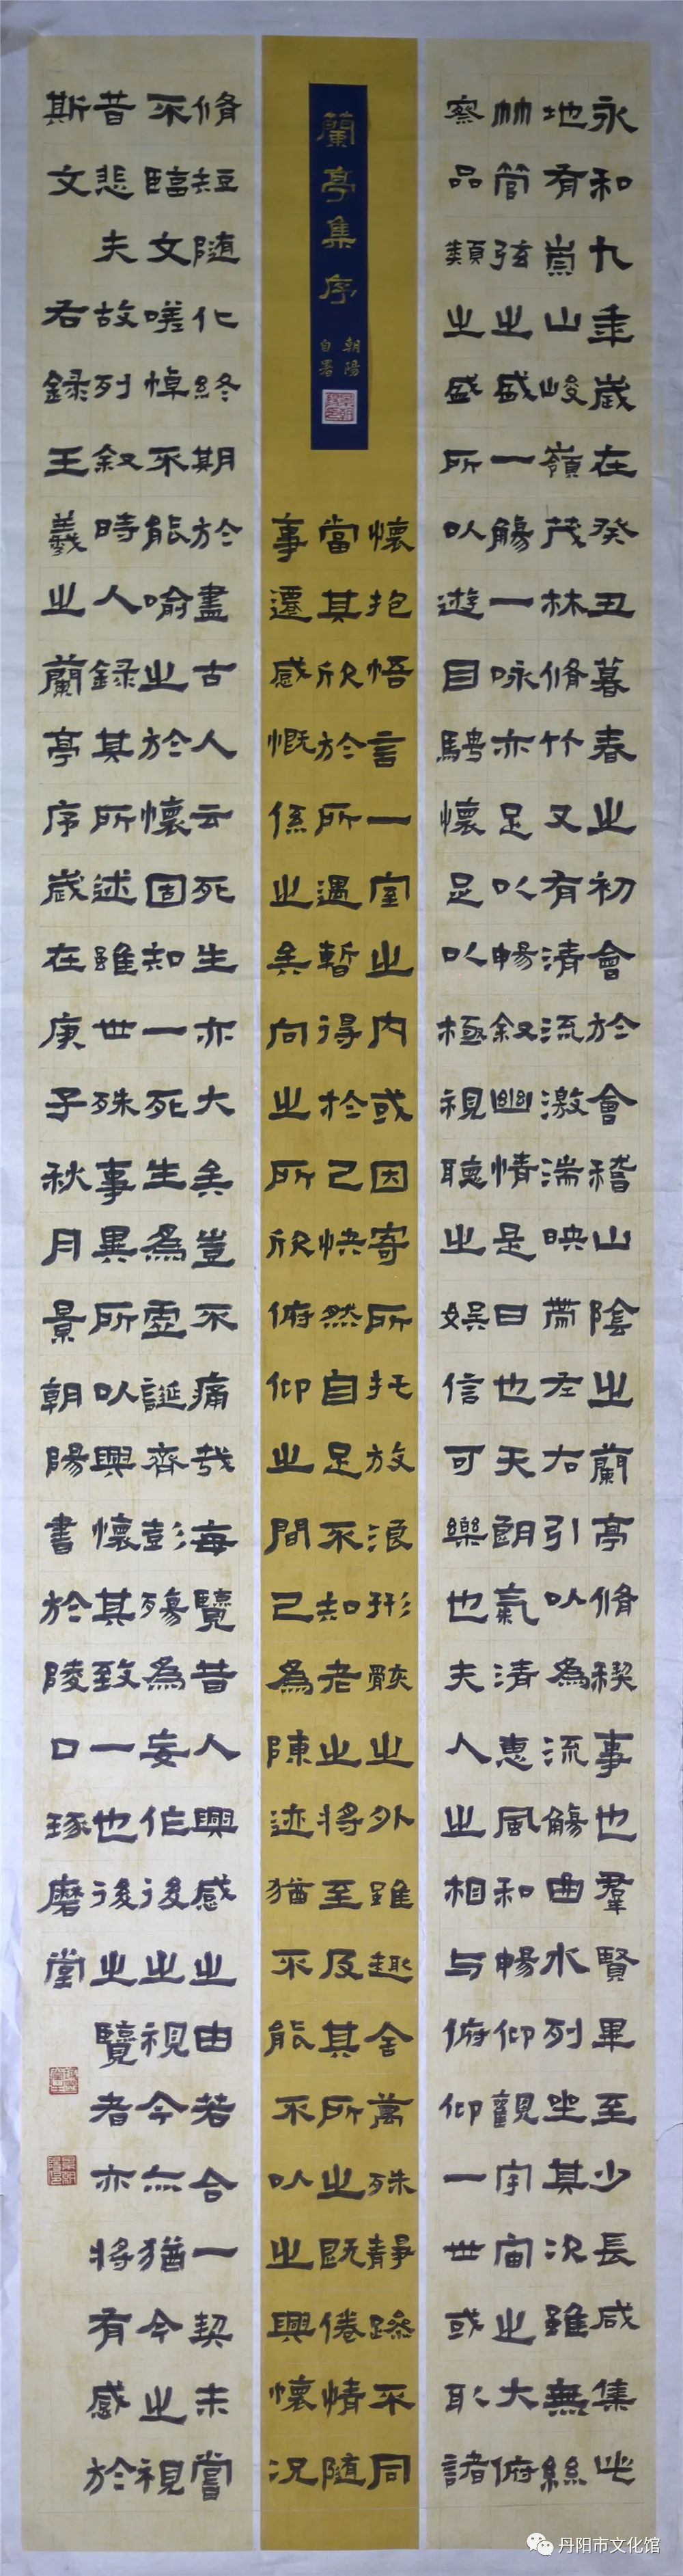 永和九年歲在癸丑暮春之初會於會稽山陰之蘭亭脩稧事也羣賢畢至少長咸集此
地有崇山峻嶺茂林脩竹又有清流激湍映帶左右引以為流觴曲水列坐其次雖無絲
竹管弦之盛一觴一咏亦足以暢叙幽情是日也天朗氣清惠風和暢仰觀宇宙之大俯
察品類之盛所以遊目騁懷足以極視聽之娛信可樂也夫人之相与俯仰一世或取諸
蘭亭集序
朝陽
自署
懷抱悟言一室之内或因寄所托放浪形骸之外雖趣舍萬殊靜躁不同
當其欣於所遇暫得於己快然自足不知老之將至及其所之既倦情隨
事遷感慨係之矣向之所欣俯仰之間已為陳迹猶不能不以之興懷況
脩短随化終期於盡古人云死生亦大矣豈不痛哉每覽昔人興感之由若合一契未嘗
不臨文嗟悼不能喻之於懷固知一死生為虛誕齊彭殤為妄作後之視今亦猶今之視
昔悲夫故列叙時人録其所述雖世殊事異所以興懷其致一也後之覽者亦將有感於
斯文右録王羲之蘭亭序歲在庚子秋月景朝陽書於陵口琢磨堂
丹阳市文化馆